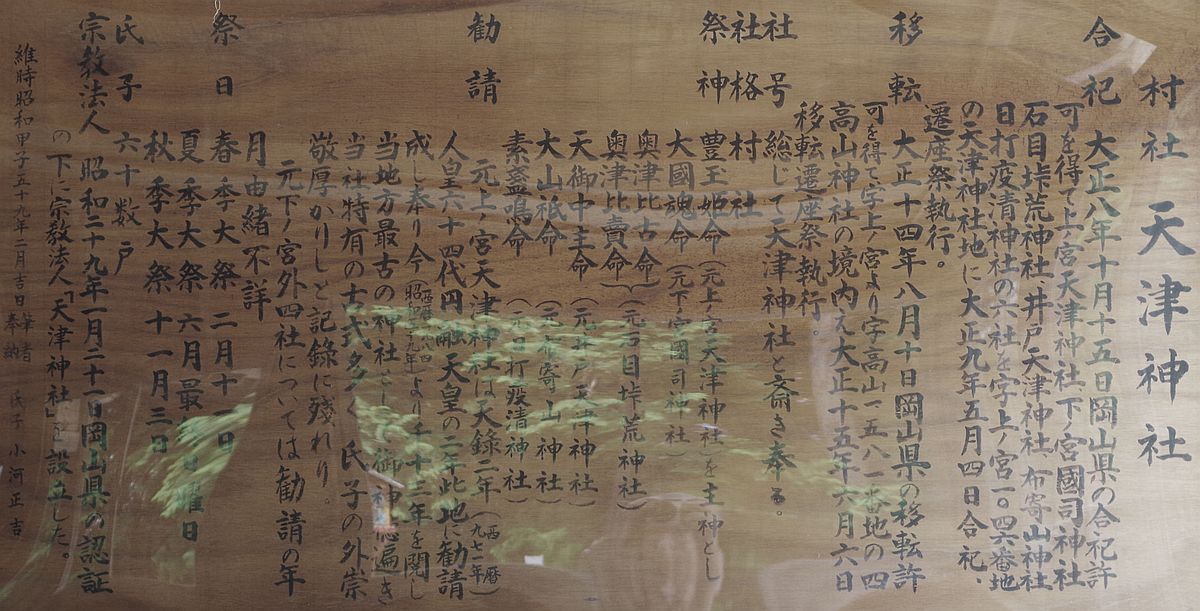 村社 天津神社
合祀 大正八年十月十五日岡山県の合祀許
可を得て上ノ宮天津神社、下ノ宮國司神社
石目垰荒神社、井戸天津神社、布寄山神社
日打疫清神社の六社を字上ノ宮一〇四六番地
の天津神社地に大正九年五月四日合祀、
遷座祭執行。
移転 大正十四年八月十日岡山県の移転許
可を得て字上ノ宮より字高山一五八一番地の四
高山神社の境内え大正十五年六月六日
移転遷座祭執行。
社号 総じて天津神社と斎き奉る。
社格 村社
祭神 豊玉姫命(元上ノ宮天津神社)を主神とし
大國魂命(元下ノ宮國司神社)
奥津比古命
奥津比賣命(元石目垰荒神社)
天御中主命(元井戸天津神社)
大山祇命(元布寄山神社)
素盞鳴命(元日打疫清神社)
勧請 元上ノ宮天津神社は天録二年(西暦九七一年)
人皇六十四代円融天皇の二年此地に勧請
成し奉り今(西暦一九八四 昭和五十九年)より千十三年を閲し
当地方最古の神社として御神徳遍き
当社特有の古式多く氏子の外崇
敬厚かりしと記錄に残れり。
元下ノ宮外四社については勧請の年
月由緒不詳
祭日 春季大祭 二月十一日
夏季大祭 六月最 日曜日
秋季大祭 十一月三日
氏子 六十数戸
宗教法人 昭和二十九年一月二十一日岡山県の認証
の下に宗教法人「天津神社」を設立した。
維時昭和甲子五十九年二月吉日 筆者 奉納 氏子 小河正吉